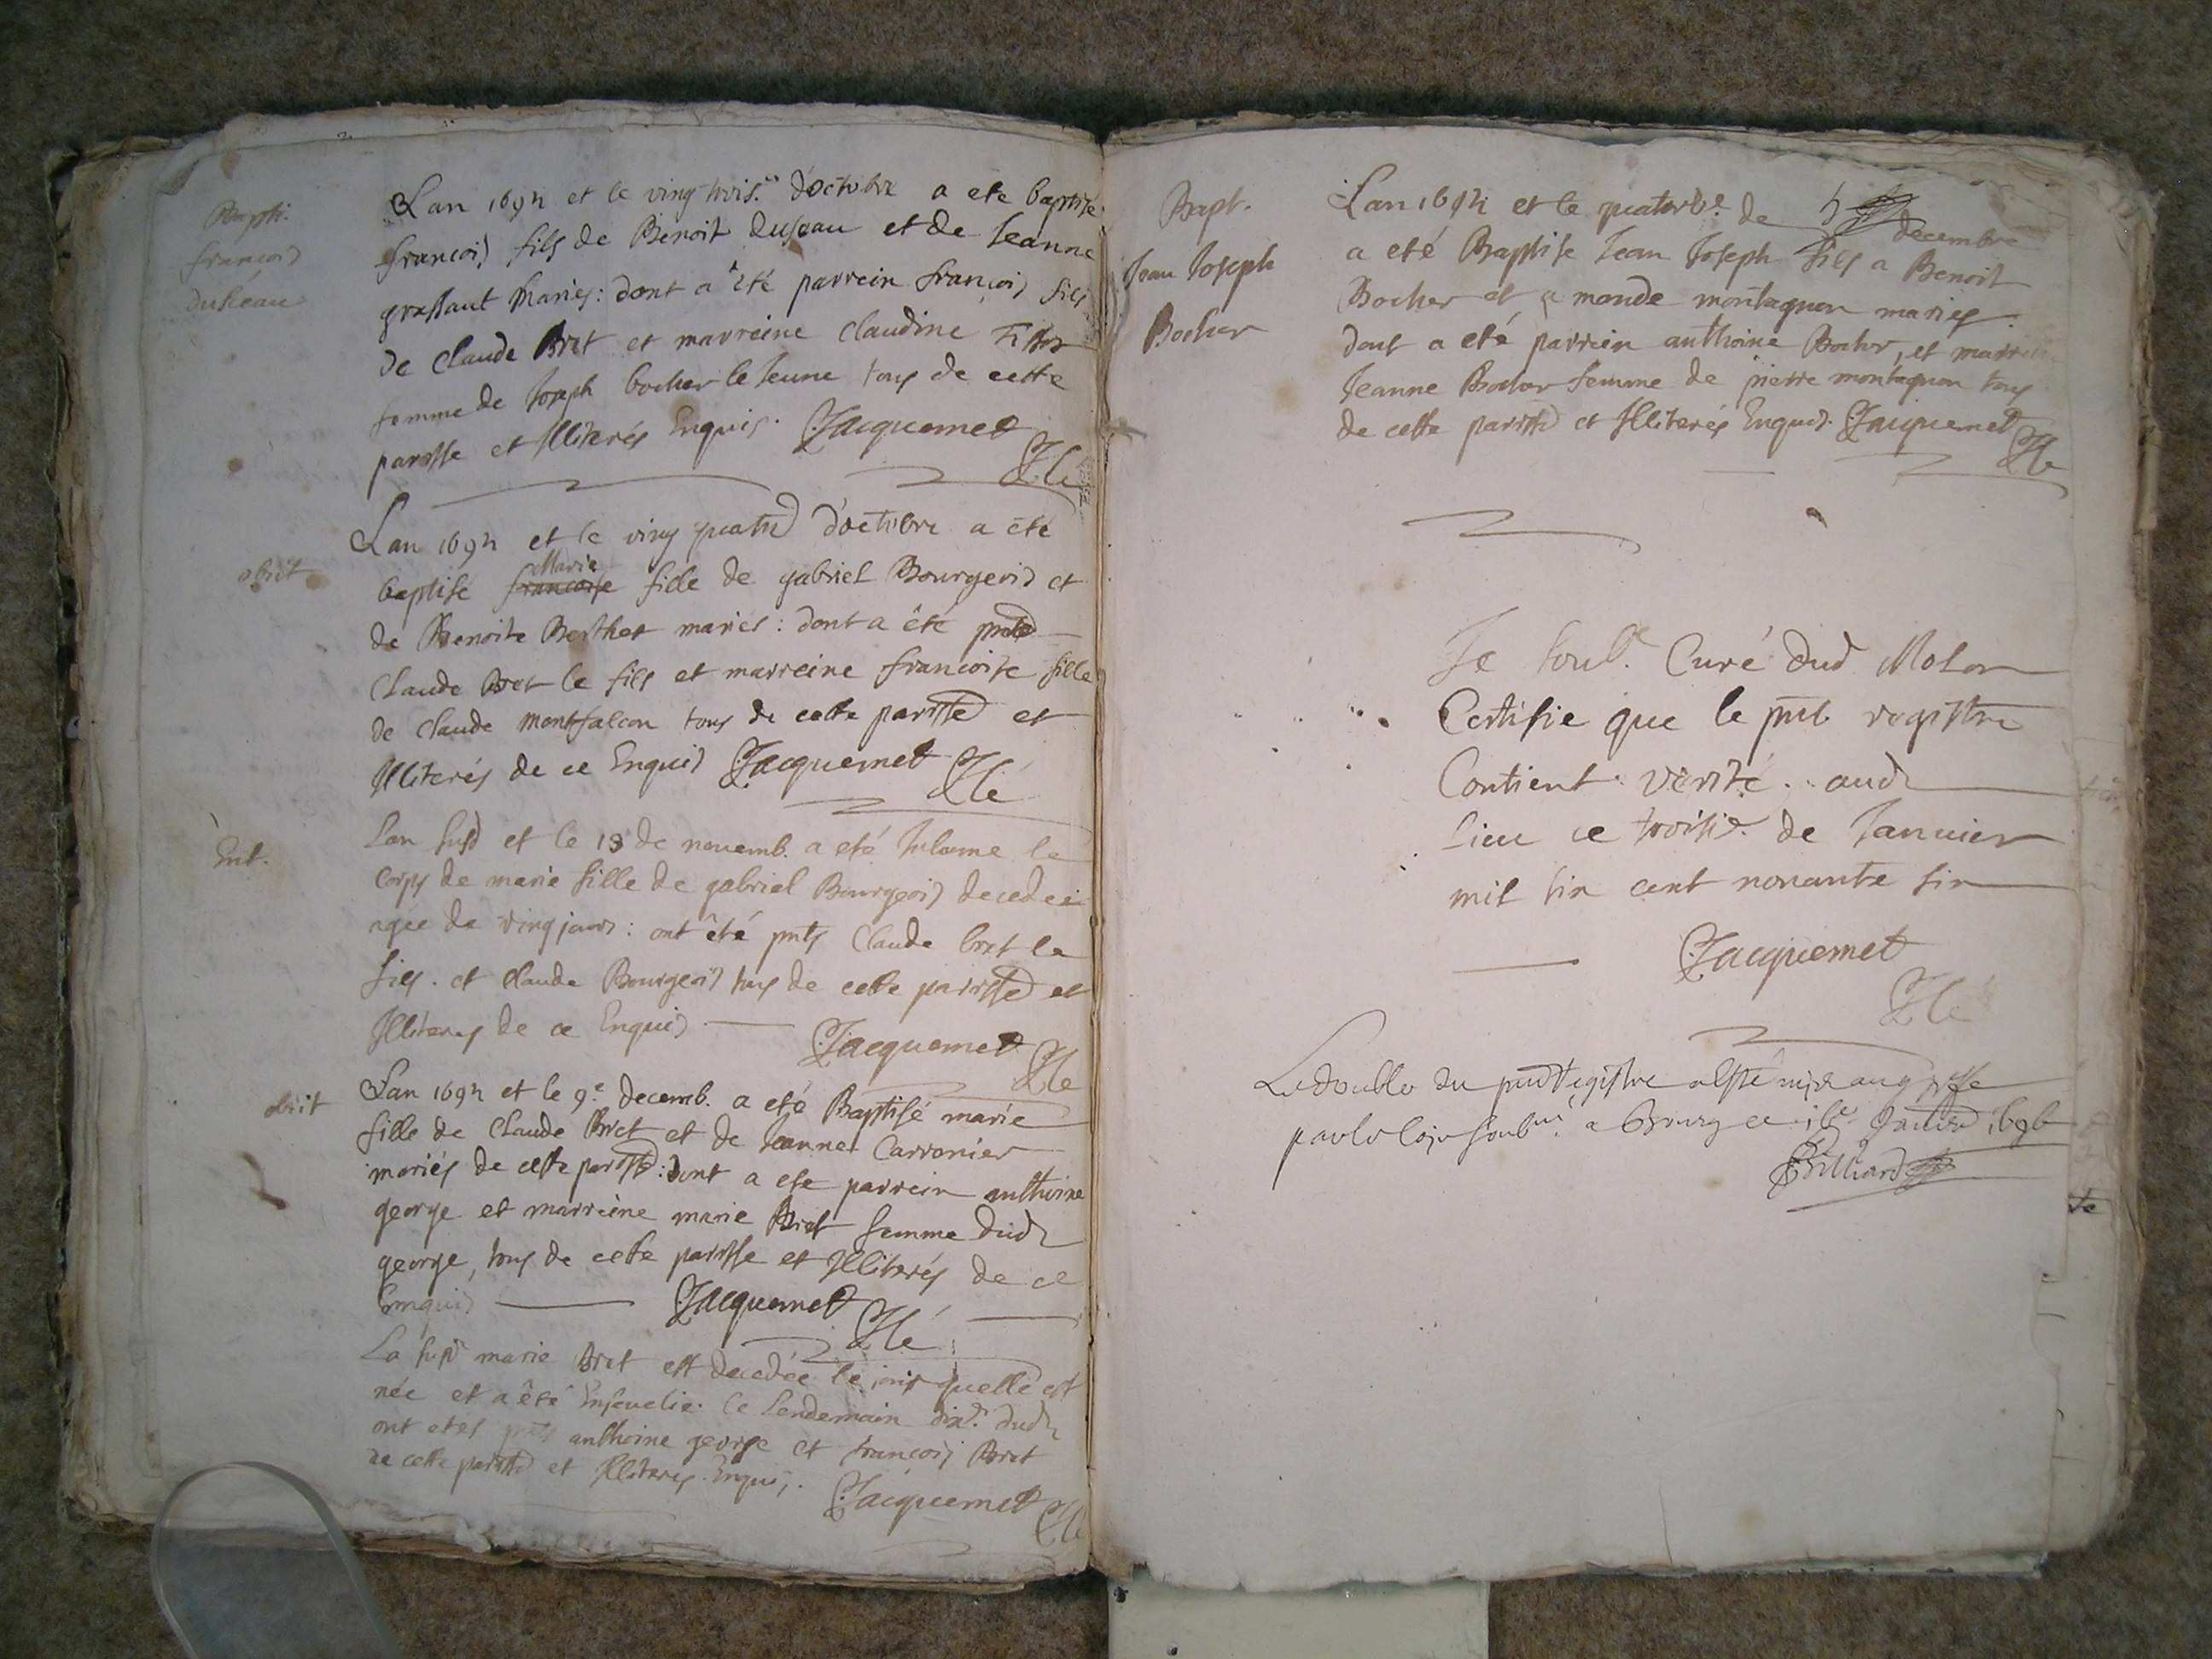 Bapti.
francois
Duseau
Lan 1695 et le ving trois.e d'octobre a ete baptisé
francois fils de Benoit duseau et de Jeanne
grassaut mariés: dont a été parrein francois fils
de Claude Bret et marreine Claudine
femme de Joseph bocher le Jeune tous de cette
paroisse et Illiterés Enquis. Jacquemet
obiit
Lan 1695 et le ving quatre d'octobre a été
baptise francoise Marie fille de gabriel Bourgeois et
de Benoite Berthet mariés: dont a été
Claude Bret le fils et marreine francoise fille
de Claude montfalcon tous de cette paroisse et
Illiterés de ce Enquis Jacquemet
Ent.
Lan susd et le 13 de novemb. a eté Inhumé le
corps de marie fille de gabriel Bourgeois decedée
agée de ving jours: ont été pnts Claude bret le
fils. et Claude Bourgeois tous de cette paroisse et
Illiterés de ce Enquis Jacquemet
obiit
Lan 1695 et le 9.e decemb. a eté Baptisé marie
fille de Claude Bret et de Jeanne Carronier
mariés de cette paroisse: dont a este parrein anthoine
george et marreine marie Bret femme dud
george, tous de cette paroisse et Illiterés de ce
Enquis Jacquemet
La susd marie bret est decedée le jour quelle est
née et a été Ensevelie le lendemain dix.e dud
ont etés pnts anthoine george et francois Bret
de cette paroisse et Illiterés Enquis. Jacquemet
Bapt.
Jean Joseph
Bocher
Lan 1695 et le quatorze de decembre
a eté Baptise Jean Joseph fils a Benoit
Bocher et a monde montagnon mariés.
dont a eté parrein anthoine Bocher, et marreine
Jeanne Bocher femme de pierre montagnon tous
de cette paroisse et Illiterés Enquis. Jacquemet
Je soub.e Curé dud Molon
Certifie que le pnt registre
Contient vérité. aud
lieu ce troisie. de Januier
mil six cent nonante six
Jacquemet
Le double du pnt Registre a esté mis au greffe
par le soubné a Bourg ce Janvier 1696